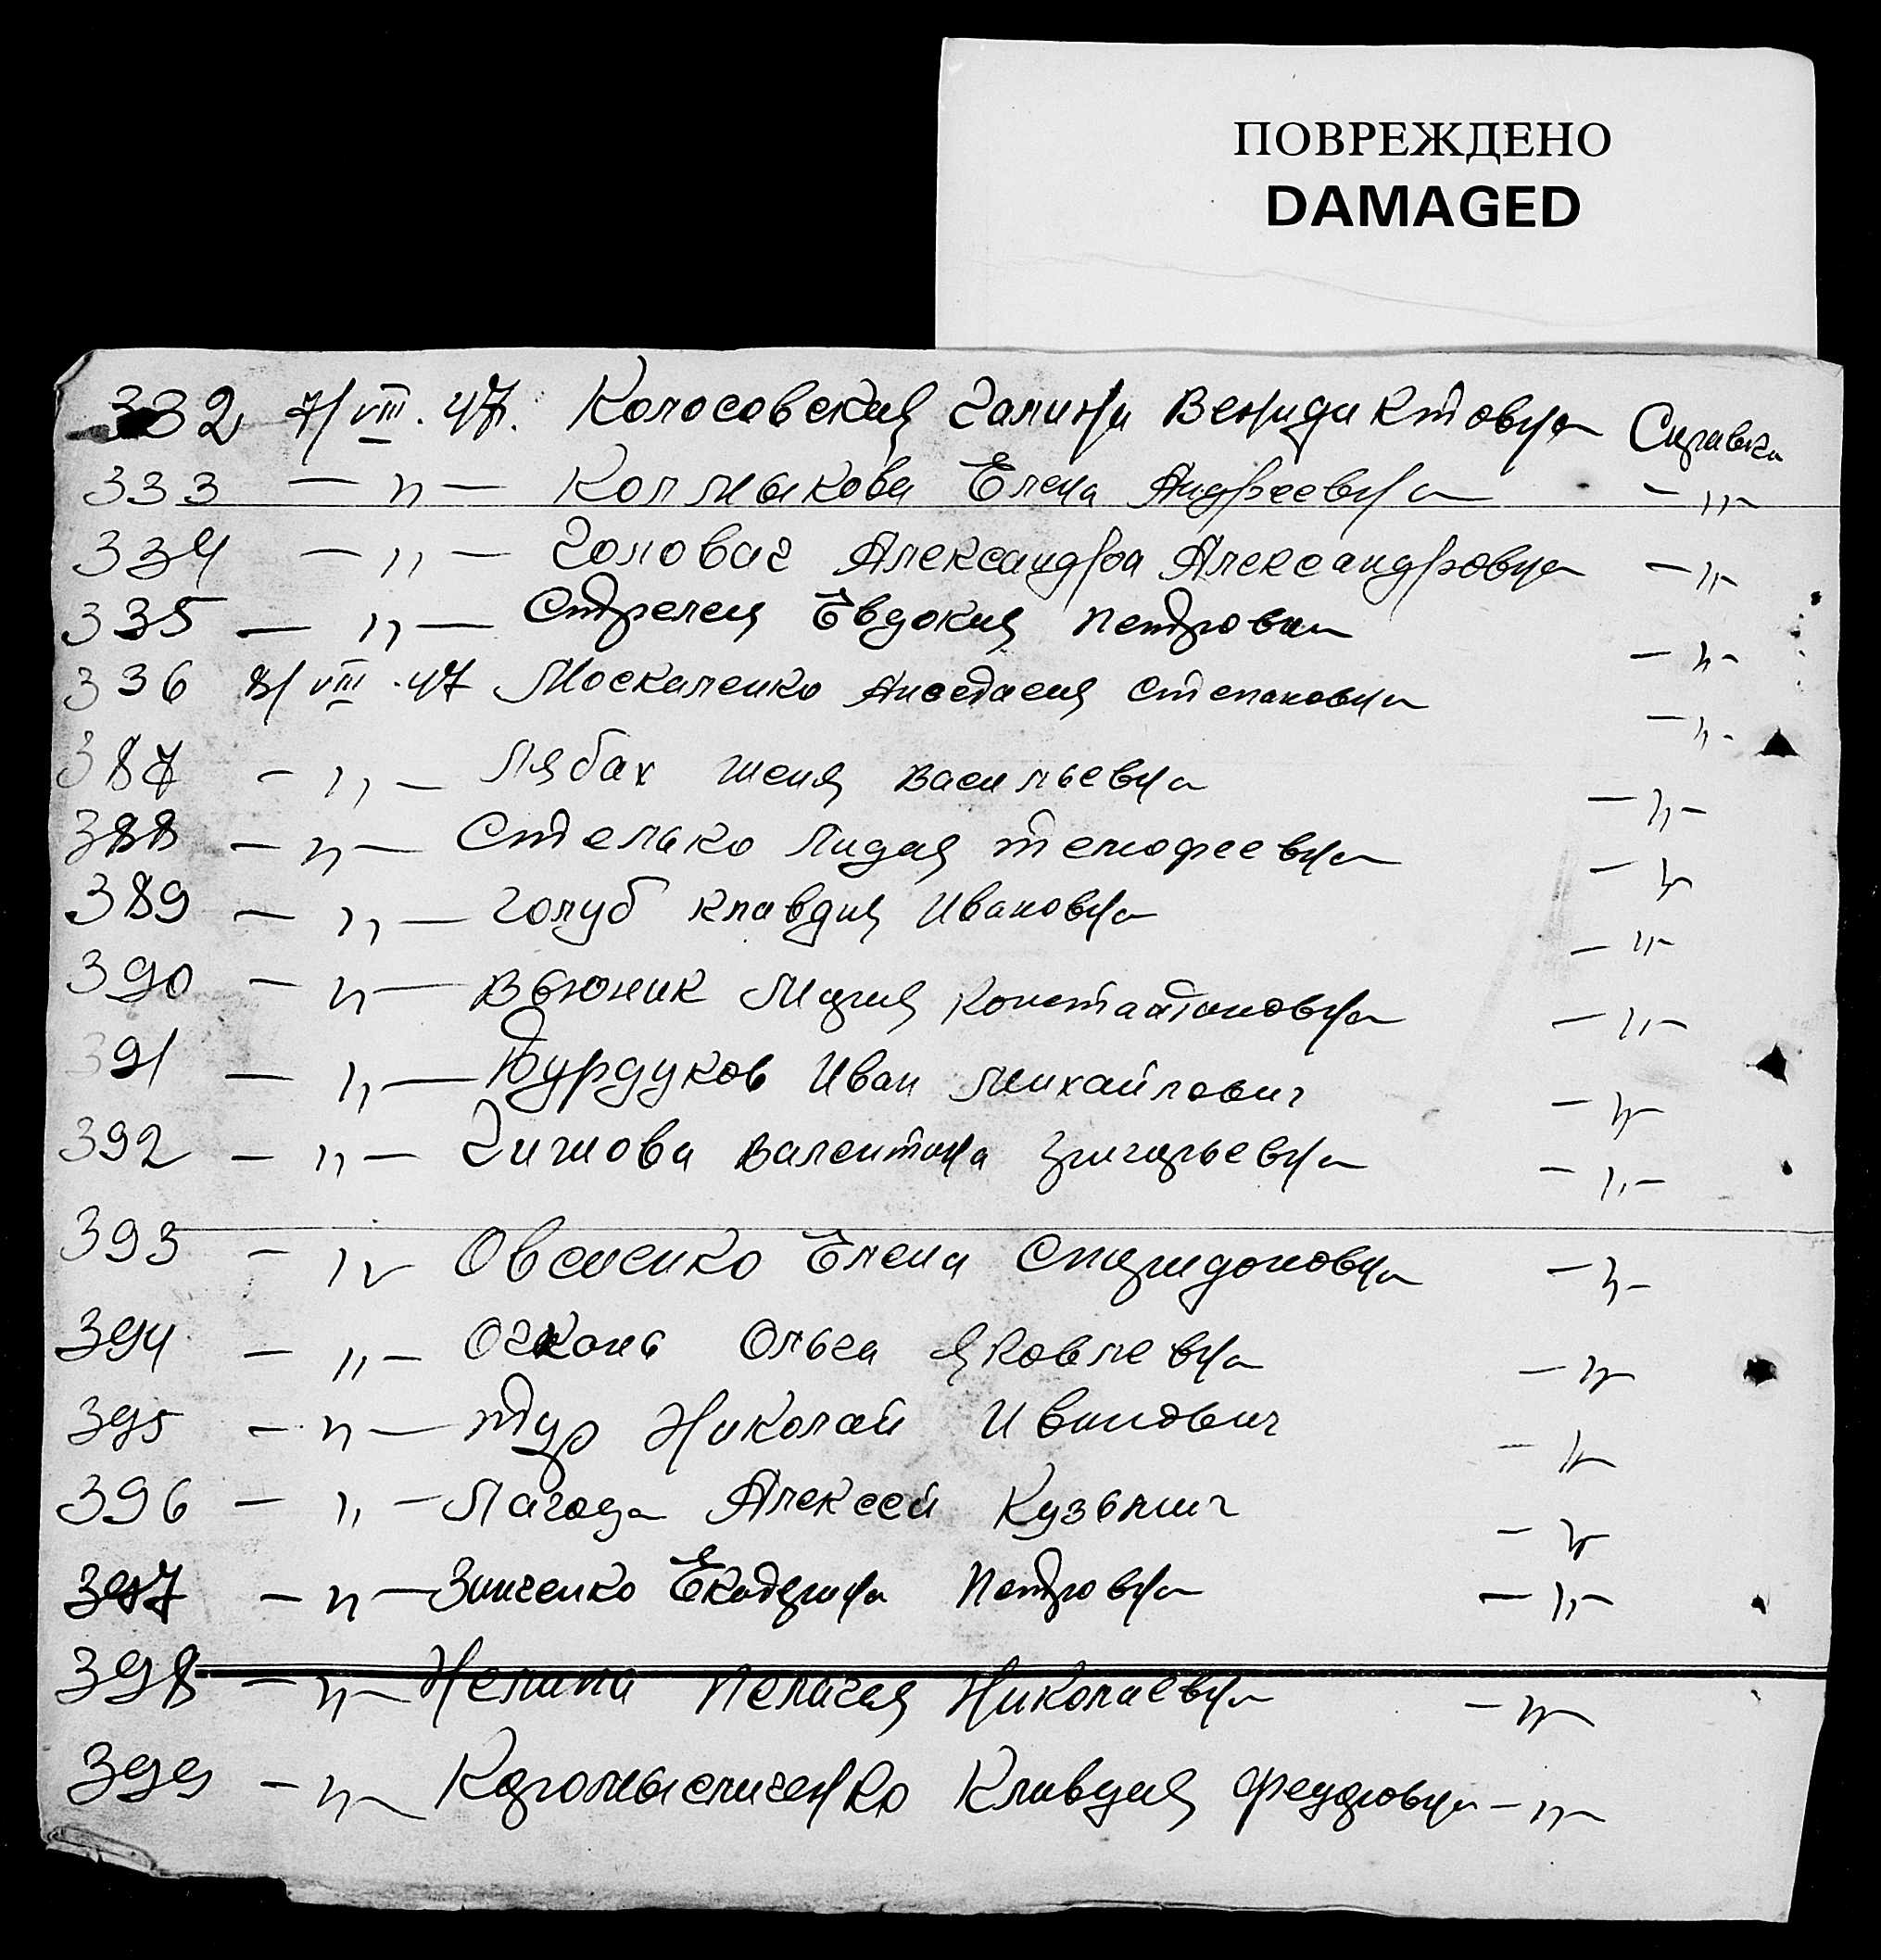 ПОВРЕЖДЕНО
DAMAGED
332 7/VIII.47. Колосовская Галина Венидиктовна Справка
333 — " — Колмыкова Елена Андреевна — " —
334 — " — Головач Александра Александровна — " —
335 — " — Стрелец Евдокия Петровна — " —
336 8/VIII.47 Москаленко Анастасия Степановна — " —
387 — " — Лябах Женя Васильевна — " —
388 — " — Стелько Лидия Темофеевна — " —
389 — " — Голуб Клавдия Ивановна — " —
390 — " — Вьюник Мария Константиновна — " —
391 — " — Бурдуков Иван Михайлович — " —
392 — " — Чижова Валентина Григорьевна — " —
393 — " — Овсиенко Елена Спиридоновна — " —
394 — " — Ольга Яковлевна — " —
395 — " — Тур Николай Иванович — " —
396 — " — Лагода Алексей Кузьмич — " —
397 — " — Зинченко Екатерина Петровна — " —
398 — " — Пелагея Николаевна — " —
399 — " — Коромысличенко Клавдия Федоровна — " —